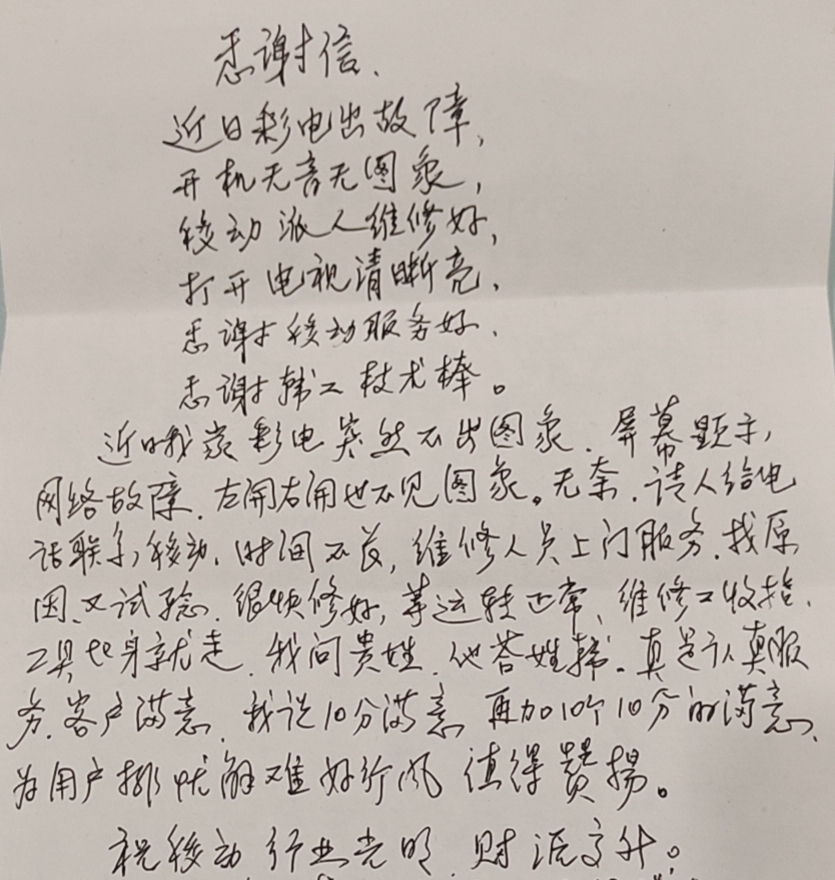 感谢信、
近日彩电出故障,
开机无音无图象,
移动派人维修好,
打开电视清晰亮、
感谢移动服务好、
感谢韩工技术棒。
近日我家彩电突然不出图象、屏幕显示,
网络故障、左开右开也不见图象。无奈、请人给电
话联系移动、时间不长,维修人员上门服务、找原
因、又试验、很快修好,等运转正常、维修工收拾、
工具起身就走、我问贵姓、他答姓韩。真是认真服
务、客户满意、我说10分满意、再加10个10分的满意、
为用户排忧解难好行风值得赞扬。
祝移动行业光明、财源高升。